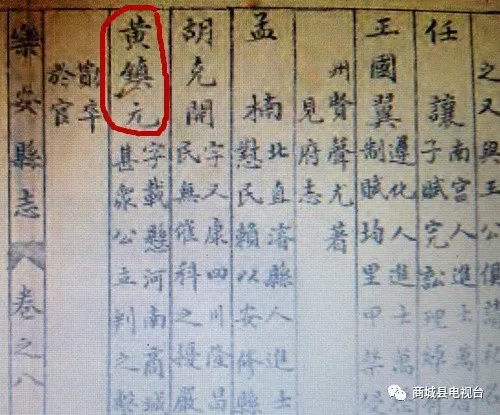 之又與王公
任讓 南宮人進士萬
子賦完訟理
王國翼 遵化人進士萬
制賦均里甲
州賢聲尤著
見府志
孟楠 北直濬縣人進士
慰民賴以安修縣
胡允開 字又康四川隆昌
民無催科之擾嚴
黄鎮元 字載懸河南商城
甚衆公立判之
卒
於官
樂安縣志 卷之八
商城县电视台